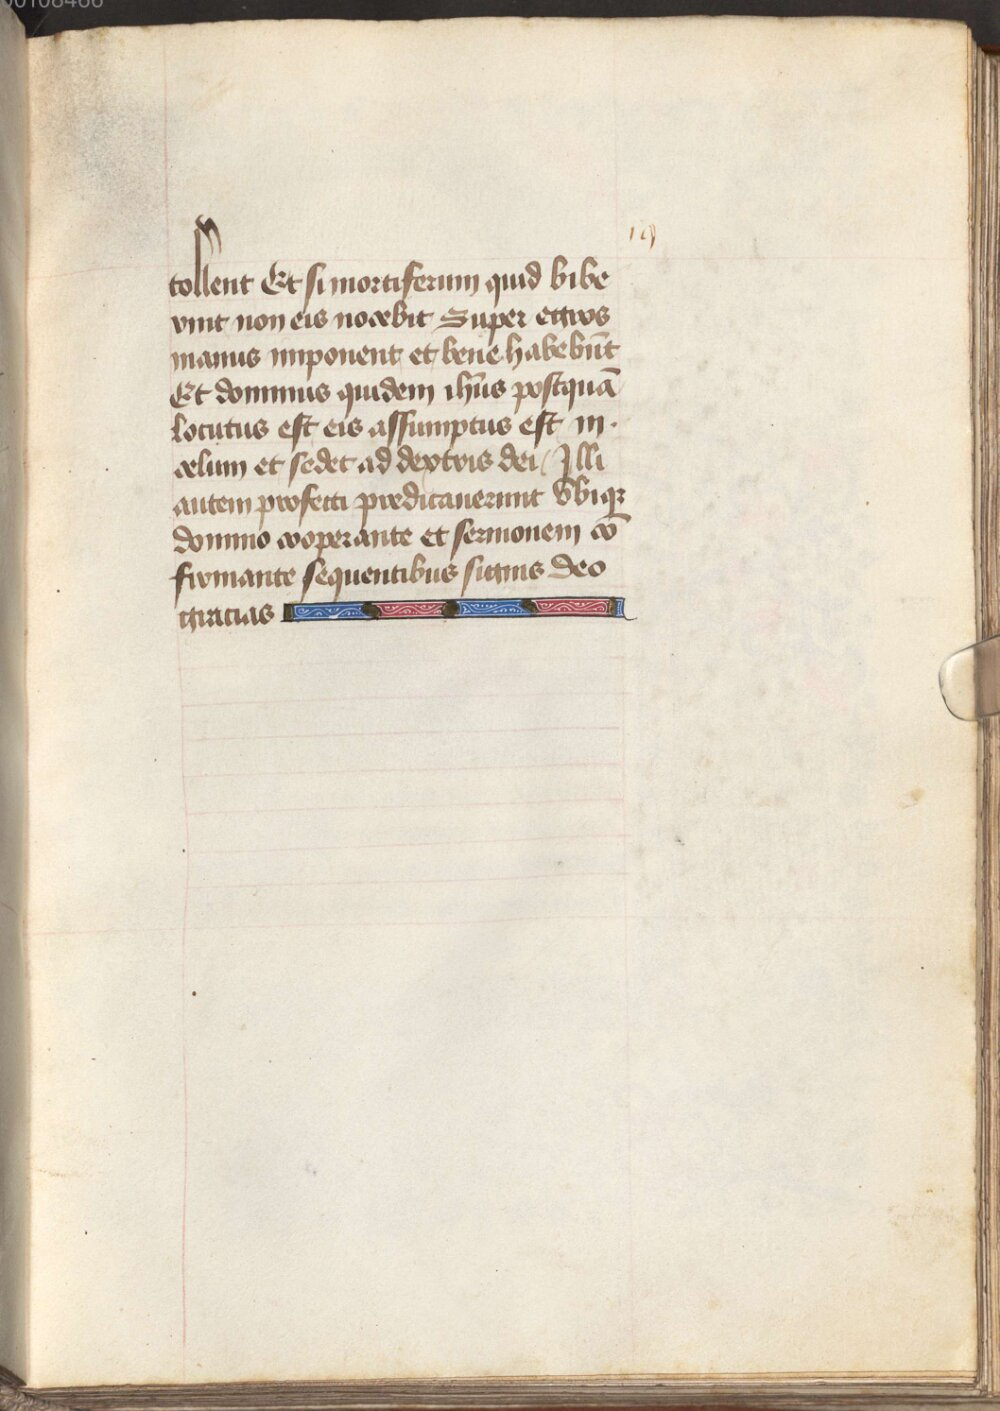 00108466
19
tollent Et si mortiferum quid bibe
rint non eis nocebit Super egros
manus imponent et bene habebūt
Et dominus quidem ihūs postquā
locutus est eis assumptus est in
celum et sedet ad dextris dei Illi
autem profecti predicauerunt vbiqꝫ
domino cooperante et sermonem cō
firmante sequentibus signis Deo
gracias